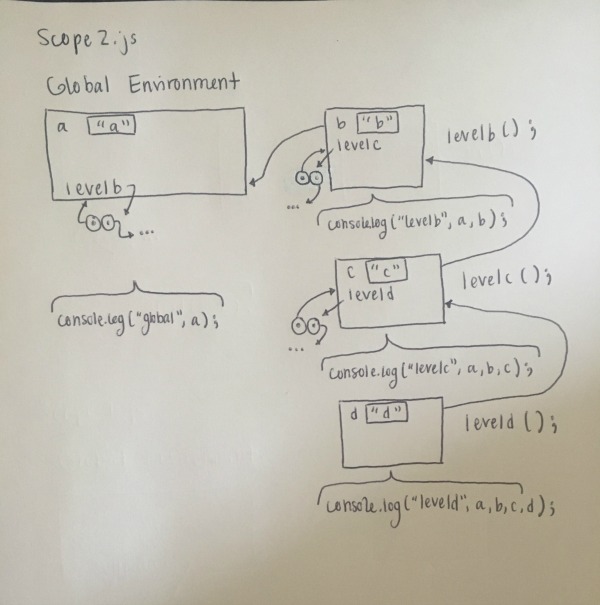 Scope2.js
Global Environment
a "a"
levelb
...
console.log("global", a);
b "b"
levelc
...
levelb();
console.log("levelb", a, b);
c "c"
leveld
...
levelc();
console.log("levelc", a, b, c);
d "d"
leveld();
console.log("leveld", a, b, c, d);